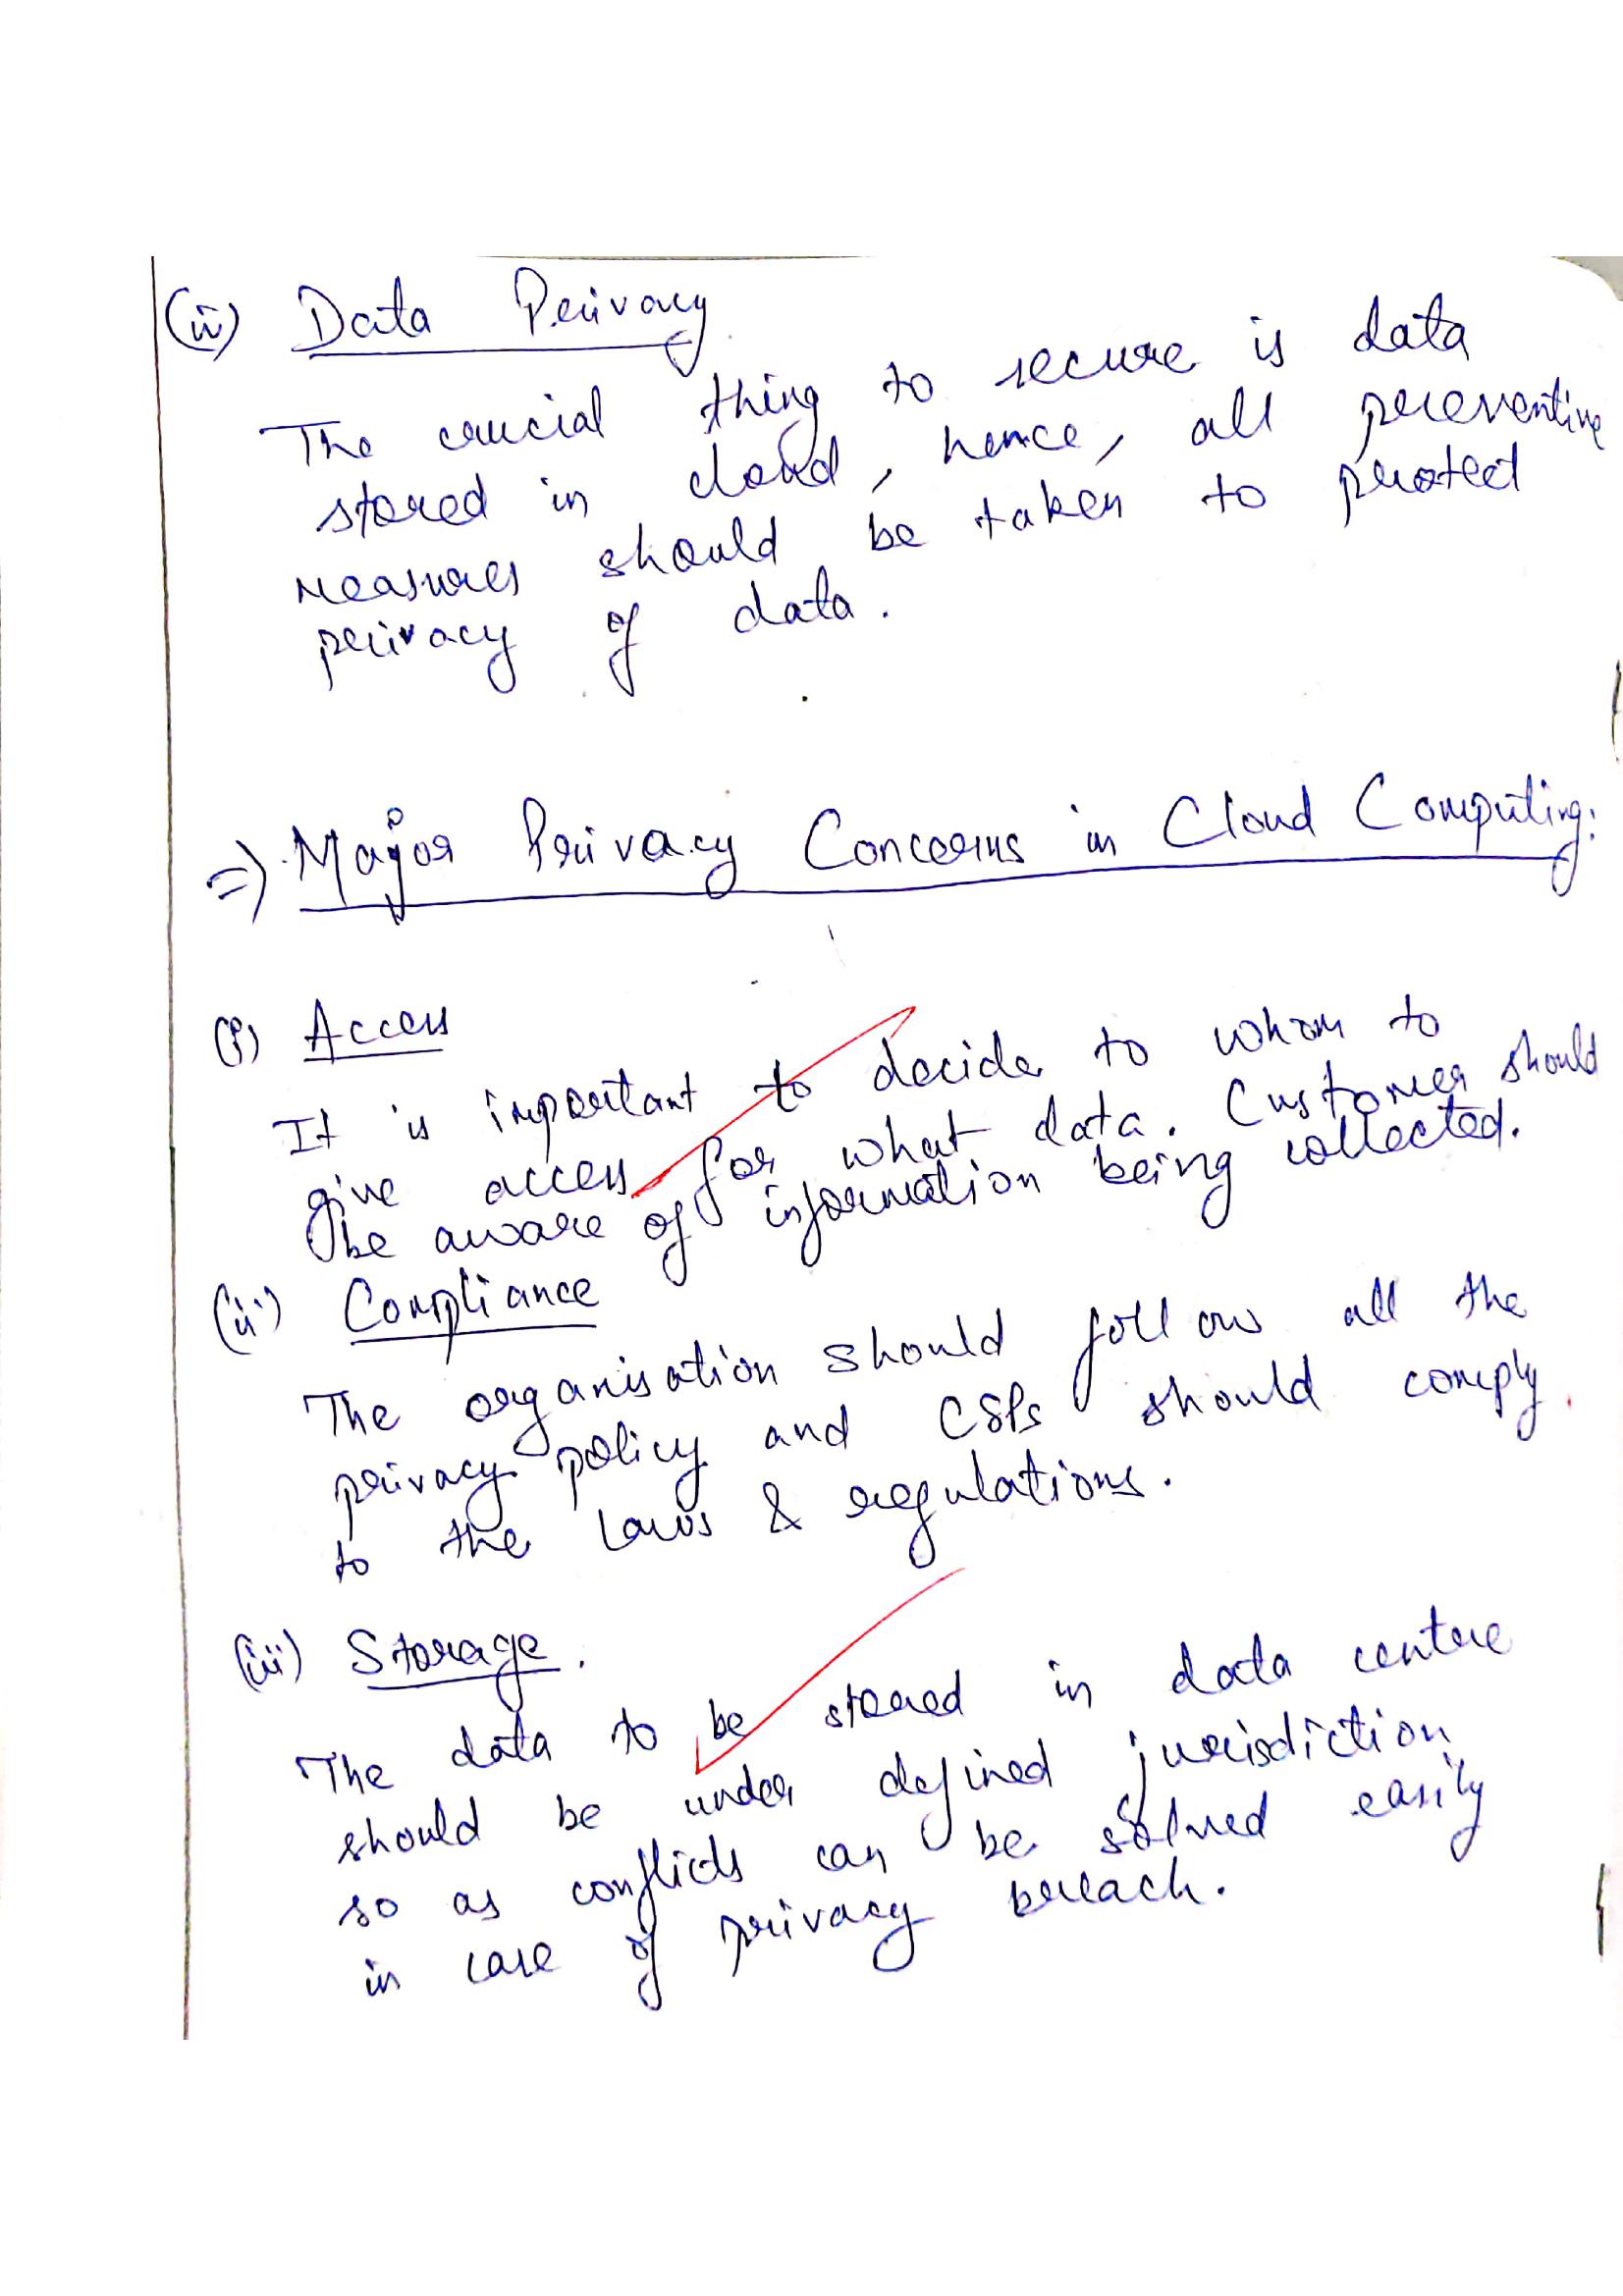 (iv) Data Privacy
The crucial thing to secure is data
stored in cloud, hence, all preventive
measures should be taken to protect
privacy of data.
=> Major Privacy Concerns in Cloud Computing:
(i) Access
It is important to decide to whom to
give access for what data. Customer should
be aware of information being collected.
(ii) Compliance
The organisation should follow all the
privacy policy and CSPs should comply
to the laws & regulations.
(iii) Storage.
The data to be stored in data centre
should be under defined jurisdiction
so as conflicts can be solved easily
in case of privacy breach.